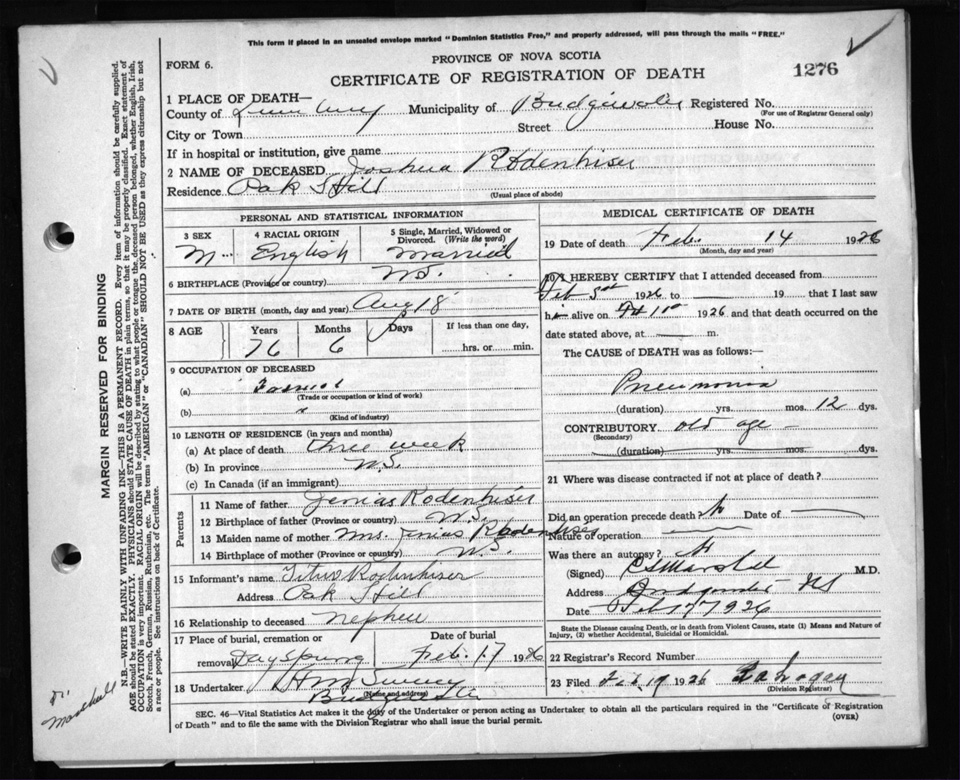 This form if placed in an unsealed envelope marked "Dominion Statistics Free," and properly addressed, will pass through the mails "FREE."
FORM 6.
PROVINCE OF NOVA SCOTIA
CERTIFICATE OF REGISTRATION OF DEATH
1276
1 PLACE OF DEATH—
County of Lunenburg Municipality of Bridgewater Registered No.
(For use of Registrar General only)
City or Town Street House No.
If in hospital or institution, give name
2 NAME OF DECEASED Joshua Rodenhiser
Residence Oak Hill
(Usual place of abode)
PERSONAL AND STATISTICAL INFORMATION
3 SEX
M
4 RACIAL ORIGIN
English
5 Single, Married, Widowed or Divorced. (Write the word)
Married
6 BIRTHPLACE (Province or country) N.S.
7 DATE OF BIRTH (month, day and year) Aug 18
8 AGE
Years
76
Months
6
Days
If less than one day,
hrs. or min.
9 OCCUPATION OF DECEASED
(a)
(Trade or occupation or kind of work)
(b)
(Kind of industry)
10 LENGTH OF RESIDENCE (in years and months)
(a) At place of death three week
(b) In province N.S.
(c) In Canada (if an immigrant)
Parents
11 Name of father Jenias Rodenhiser
12 Birthplace of father (Province or country) N.S.
13 Maiden name of mother Mrs. Jenias Rodenhiser
14 Birthplace of mother (Province or country) N.S.
15 Informant's name Titus Rodenhiser
Address Oak Hill
16 Relationship to deceased Nephew
17 Place of burial, cremation or removal Dayspring
Date of burial
Feb. 17 1926
18 Undertaker H M Sweeny
(Name and address)
MEDICAL CERTIFICATE OF DEATH
19 Date of death Feb. 14 1926
(Month, day and year)
20 I HEREBY CERTIFY that I attended deceased from
Feb 1926 to 19 that I last saw
him alive on 1926 and that death occurred on the
date stated above, at m.
The CAUSE of DEATH was as follows:—
Pneumonia
(duration) yrs. mos. 12 dys.
CONTRIBUTORY old age
(Secondary)
(duration) yrs. mos. dys.
21 Where was disease contracted if not at place of death?
Did an operation precede death? Date of
Nature of operation
Was there an autopsy?
(Signed) M.D.
Address
Date Feb 17 1926
State the Disease causing Death, or in death from Violent Causes, state (1) Means and Nature of Injury, (2) whether Accidental, Suicidal or Homicidal.
22 Registrar's Record Number
23 Filed Feb. 19 1926
(Division Registrar)
SEC. 46—Vital Statistics Act makes it the duty of the Undertaker or person acting as Undertaker to obtain all the particulars required in the "Certificate of Registration of Death" and to file the same with the Division Registrar who shall issue the burial permit.
(OVER)
MARGIN RESERVED FOR BINDING
N.B.—WRITE PLAINLY WITH UNFADING INK—THIS IS A PERMANENT RECORD. Every item of information should be carefully supplied.
AGE should be stated EXACTLY. PHYSICIANS should STATE CAUSE OF DEATH in plain terms, so that it may be properly classified. Exact statement of
OCCUPATION is very important. RACIAL ORIGIN will be described by stating to what people or tongue the deceased person belonged, whether English, Irish,
Scotch, French, German, Russian, Ruthenian, etc. The terms "AMERICAN" or "CANADIAN" SHOULD NOT BE USED as they express citizenship but not
a race or people. See instructions on back of Certificate.
Marshall